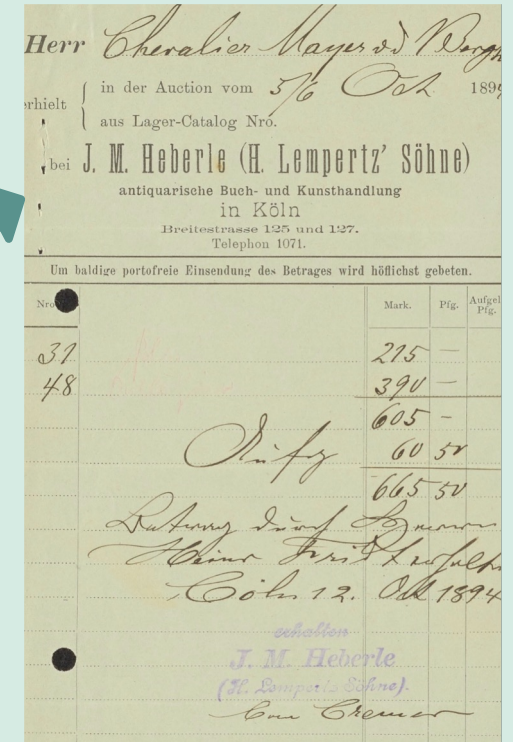 Herr Chevalier Mayer v d Bergh
erhielt in der Auction vom 5/6 Oct 1894
aus Lager-Catalog Nro.
bei J. M. Heberle (H. Lempertz' Söhne)
antiquarische Buch- und Kunsthandlung
in Köln
Breitestrasse 125 und 127.
Telephon 1071.
Um baldige portofreie Einsendung des Betrages wird höflichst gebeten.
Nro. Mark. Pfg. Aufgel Pfg.
31 215 —
48 390 —
605 -
Aufg 60 50
665 50
Betrag durch Herrn
Heinr
Cöln 12. Oct 1894
erhalten
J. M. Heberle
(H. Lempertz Söhne).
Cremer